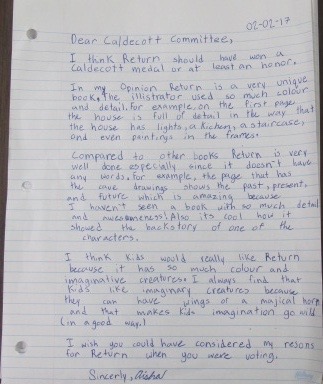 02-02-17
Dear Caldecott Committee,
I think Return should have won a
Caldecott medal or at least an honor.
In my Opinion Return is a very unique
book. The illustrator used so much colour
and detail. for example, on the first page,
the house is full of detail in the way that
the house has lights, a kichen, a staircase,
and even paintings in the frames.
Compared to other books Return is very
well done especially since it doesn't have
any words. for example, the page that has
the cave drawings shows the past, present,
and future which is amazing because
I haven't seen a book with so much detail
and awesomeness! Also its cool how it
showed the backstory of one of the
characters.
I think Kids would really like Return
because it has so much colour and
imaginative creatures. I always find that
Kids like imaginary creatures because
they can have wings of a majical horn
and that makes kids imagination go wild
(in a good way.)
I wish you could have considered my resons
for Return when you were voting.
Sincerly, Aisha